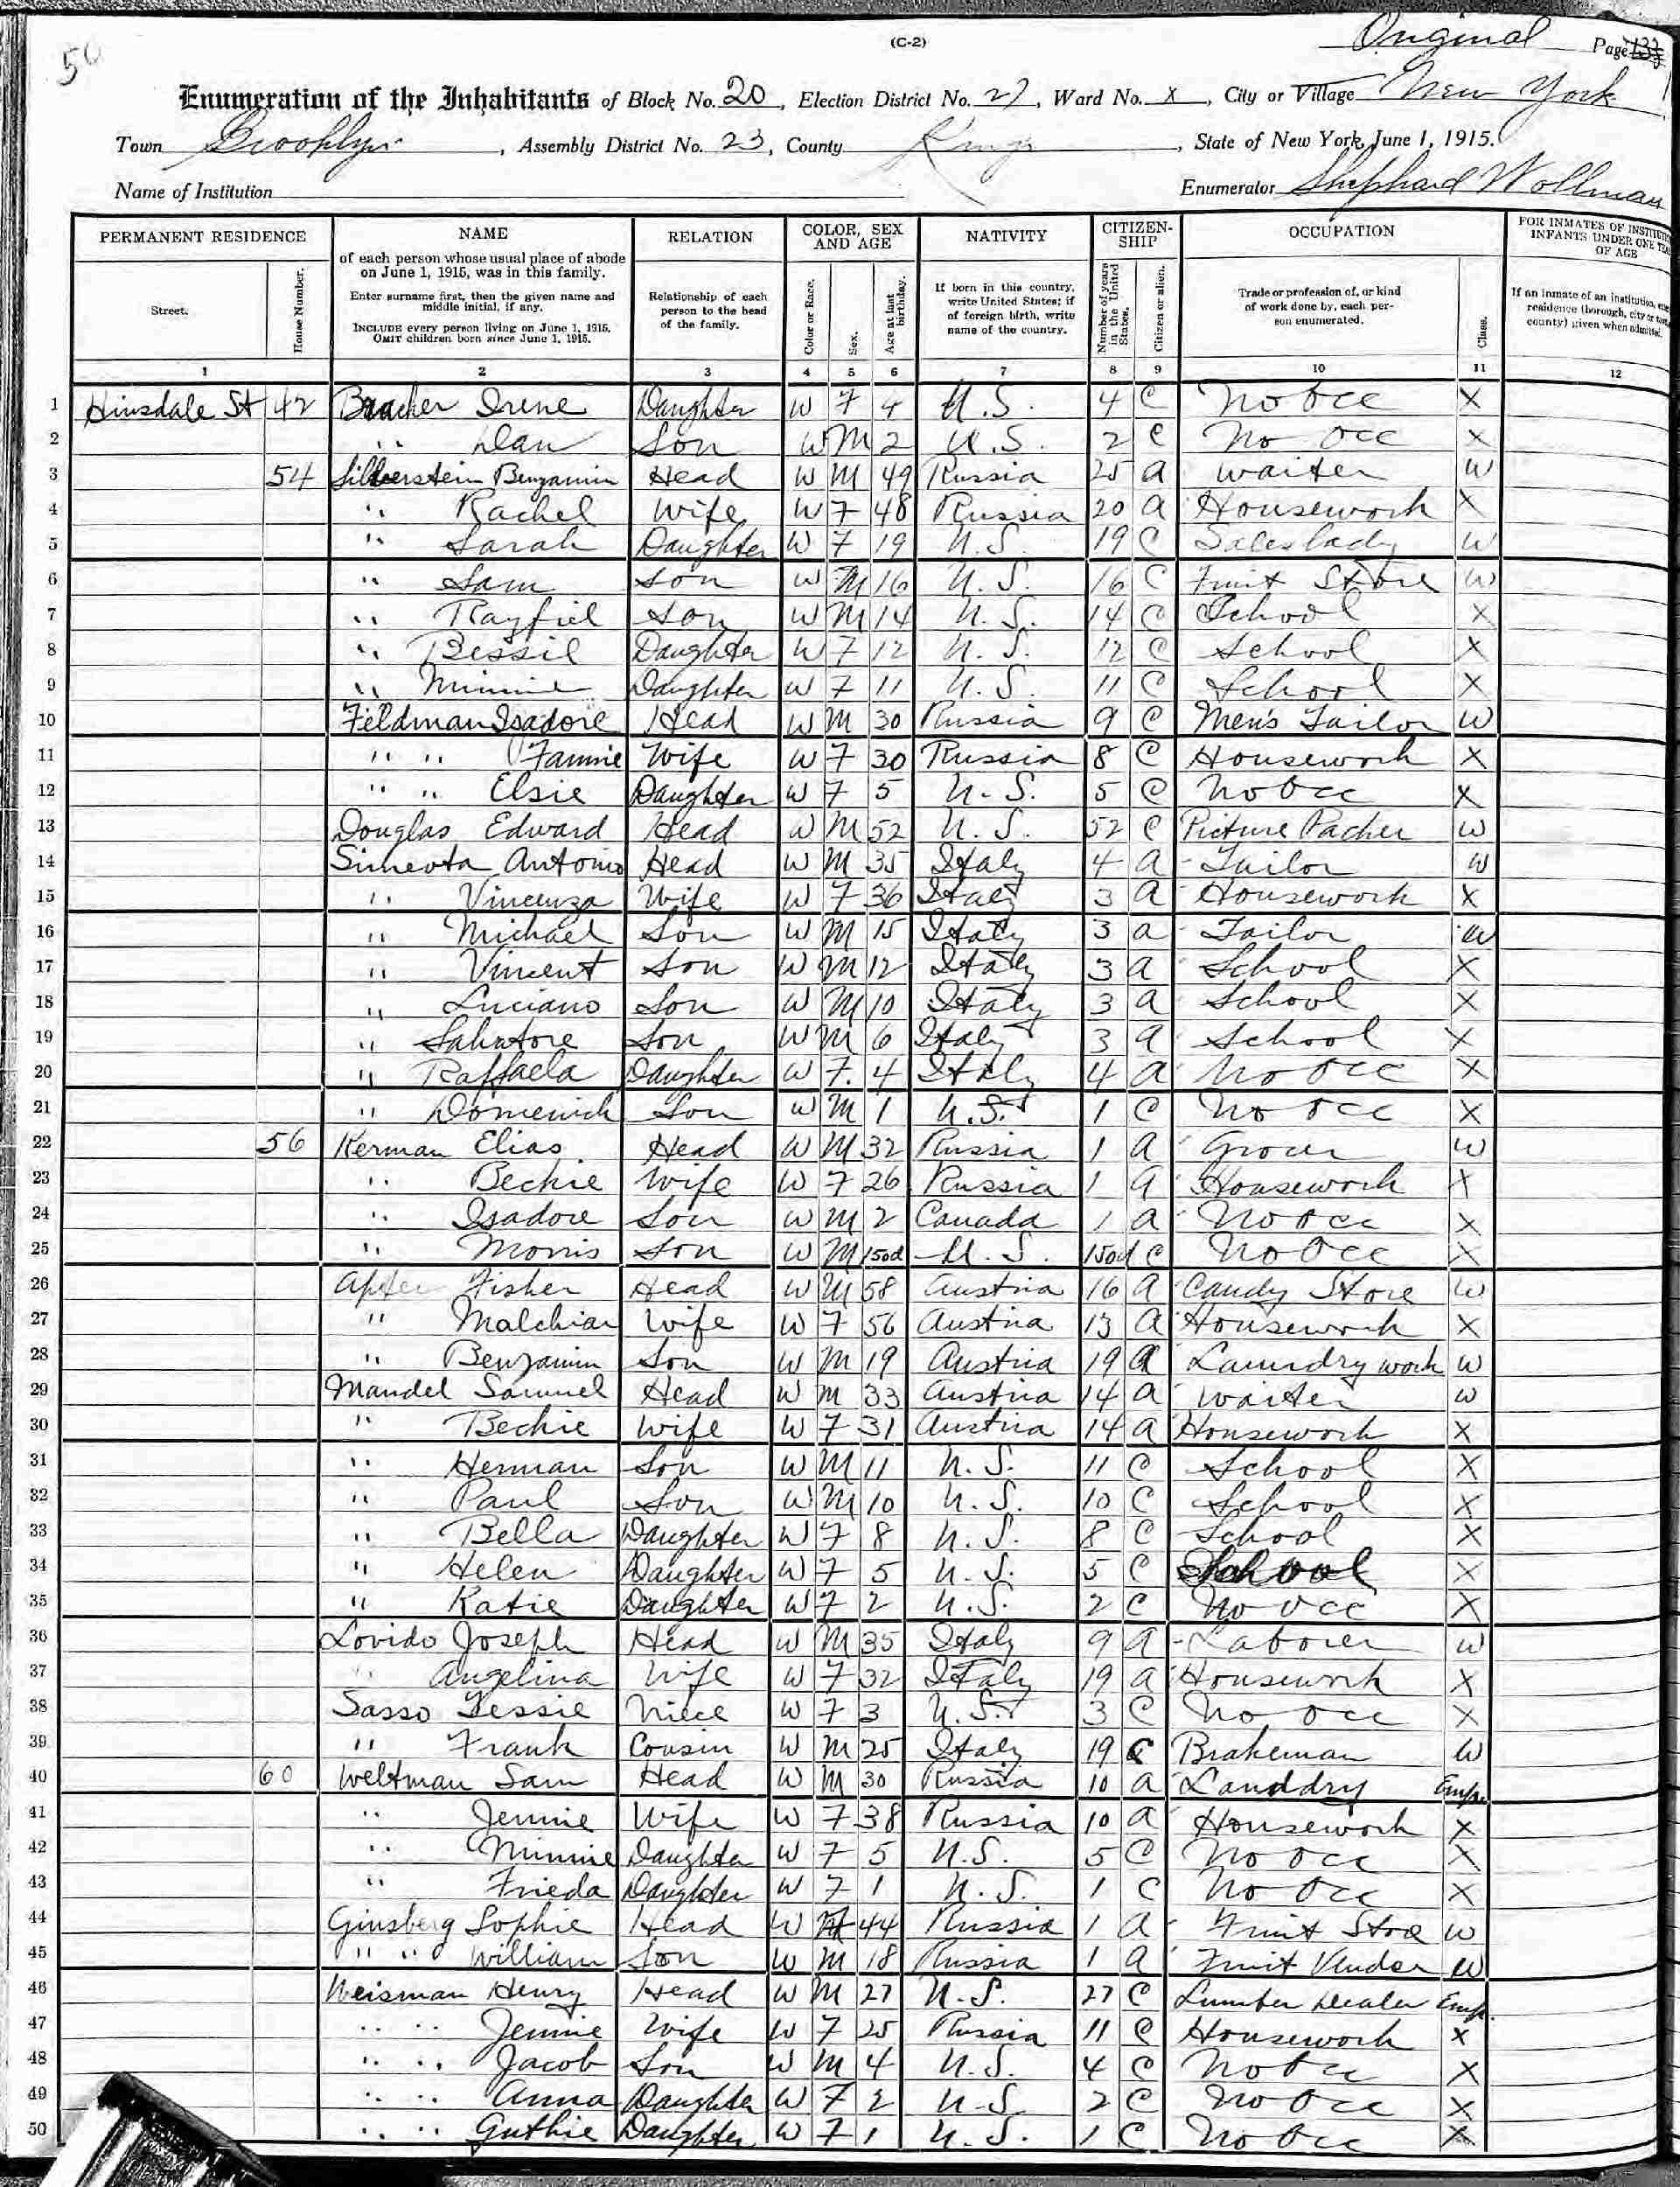 50
(C-2)
Original Page 133
Enumeration of the Inhabitants of Block No. 20, Election District No. 27, Ward No. X, City or Village New York
Town Brooklyn, Assembly District No. 23, County Kings, State of New York, June 1, 1915.
Name of Institution
Enumerator Shephard Wollman
PERMANENT RESIDENCE NAME RELATION COLOR, SEX AND AGE NATIVITY CITIZENSHIP OCCUPATION FOR INMATES OF INSTITUTIONS INFANTS UNDER ONE YEAR OF AGE
Street. House Number. of each person whose usual place of abode on June 1, 1915, was in this family. Enter surname first, then the given name and middle initial, if any. INCLUDE every person living on June 1, 1915. OMIT children born since June 1, 1915. Relationship of each person to the head of the family. Color or Race. Sex. Age at last birthday. If born in this country, write United States; if of foreign birth, write name of the country. Number of years in the United States. Citizen or alien. Trade or profession of, or kind of work done by, each person enumerated. Class. If an inmate of an institution, residence (borough, city or town, county) given when admitted.
1 2 3 4 5 6 7 8 9 10 11 12
1 Hinsdale St 42 Bracher Irene Daughter W F 4 U.S. 4 C No Occ X
2 " Dan Son W M 2 U.S. 2 C No Occ X
3 54 Silberstein Benjamin Head W M 49 Russia 25 a waiter W
4 " Rachel Wife W F 48 Russia 20 a Housework X
5 " Sarah Daughter W F 19 U.S. 19 C Saleslady W
6 " Sam Son W M 16 U.S. 16 C Fruit Store W
7 " Rayfiel Son W M 14 U.S. 14 C School X
8 " Bessil Daughter W F 12 U.S. 12 C School X
9 " Minnie Daughter W F 11 U.S. 11 C School X
10 Feldman Isadore Head W M 30 Russia 9 C Men's Tailor W
11 " " Fannie Wife W F 30 Russia 8 C Housework X
12 " " Elsie Daughter W F 5 U.S. 5 C No Occ X
13 Douglas Edward Head W M 52 U.S. 52 C Picture Packer W
14 Simeota Antonio Head W M 35 Italy 4 a Tailor W
15 " Vincenza Wife W F 36 Italy 3 a Housework X
16 " Michael Son W M 15 Italy 3 a Tailor W
17 " Vincent Son W M 12 Italy 3 a School X
18 " Luciano Son W M 10 Italy 3 a School X
19 " Salvatore Son W M 6 Italy 3 a School X
20 " Raffaela Daughter W F 4 Italy 4 a No Occ X
21 " Domenick Son W M 1 U.S. 1 C No Occ X
22 56 Kerman Elias Head W M 32 Russia 1 a Grocer W
23 " Beckie Wife W F 26 Russia 1 a Housework X
24 " Isadore Son W M 2 Canada 1 a No Occ X
25 " Morris Son W M 150d U.S. 150d C No Occ X
26 Apter Fisher Head W M 58 Austria 16 a Candy Store W
27 " Malchiar Wife W F 56 Austria 13 a Housework X
28 " Benjamin Son W M 19 Austria 19 a Laundry work W
29 Mandel Samuel Head W M 33 Austria 14 a waiter W
30 " Beckie Wife W F 31 Austria 14 a Housework X
31 " Herman Son W M 11 U.S. 11 C School X
32 " Paul Son W M 10 U.S. 10 C School X
33 " Bella Daughter W F 8 U.S. 8 C School X
34 " Helen Daughter W F 5 U.S. 5 C School X
35 " Katie Daughter W F 2 U.S. 2 C No Occ X
36 Lovido Joseph Head W M 35 Italy 9 a Laborer W
37 " Angelina Wife W F 32 Italy 19 a Housework X
38 Sasso Tessie Niece W F 3 U.S. 3 C No Occ X
39 " Frank Cousin W M 25 Italy 19 C Brakeman W
40 60 Weltman Sam Head W M 30 Russia 10 a Landdry Emp.
41 " Jennie Wife W F 38 Russia 10 a Housework X
42 " Minnie Daughter W F 5 U.S. 5 C No Occ X
43 " Frieda Daughter W F 1 U.S. 1 C No Occ X
44 Ginsberg Sophie Head W F 44 Russia 1 a Fruit Store W
45 " " William Son W M 18 Russia 1 a Fruit Vendor W
46 Weisman Henry Head W M 27 U.S. 27 C Lumber Dealer Emp.
47 " " Jennie Wife W F 25 Russia 11 C Housework X
48 " " Jacob Son W M 4 U.S. 4 C No Occ X
49 " " Anna Daughter W F 2 U.S. 2 C No Occ X
50 " " Guthie Daughter W F 1 U.S. 1 C No Occ X